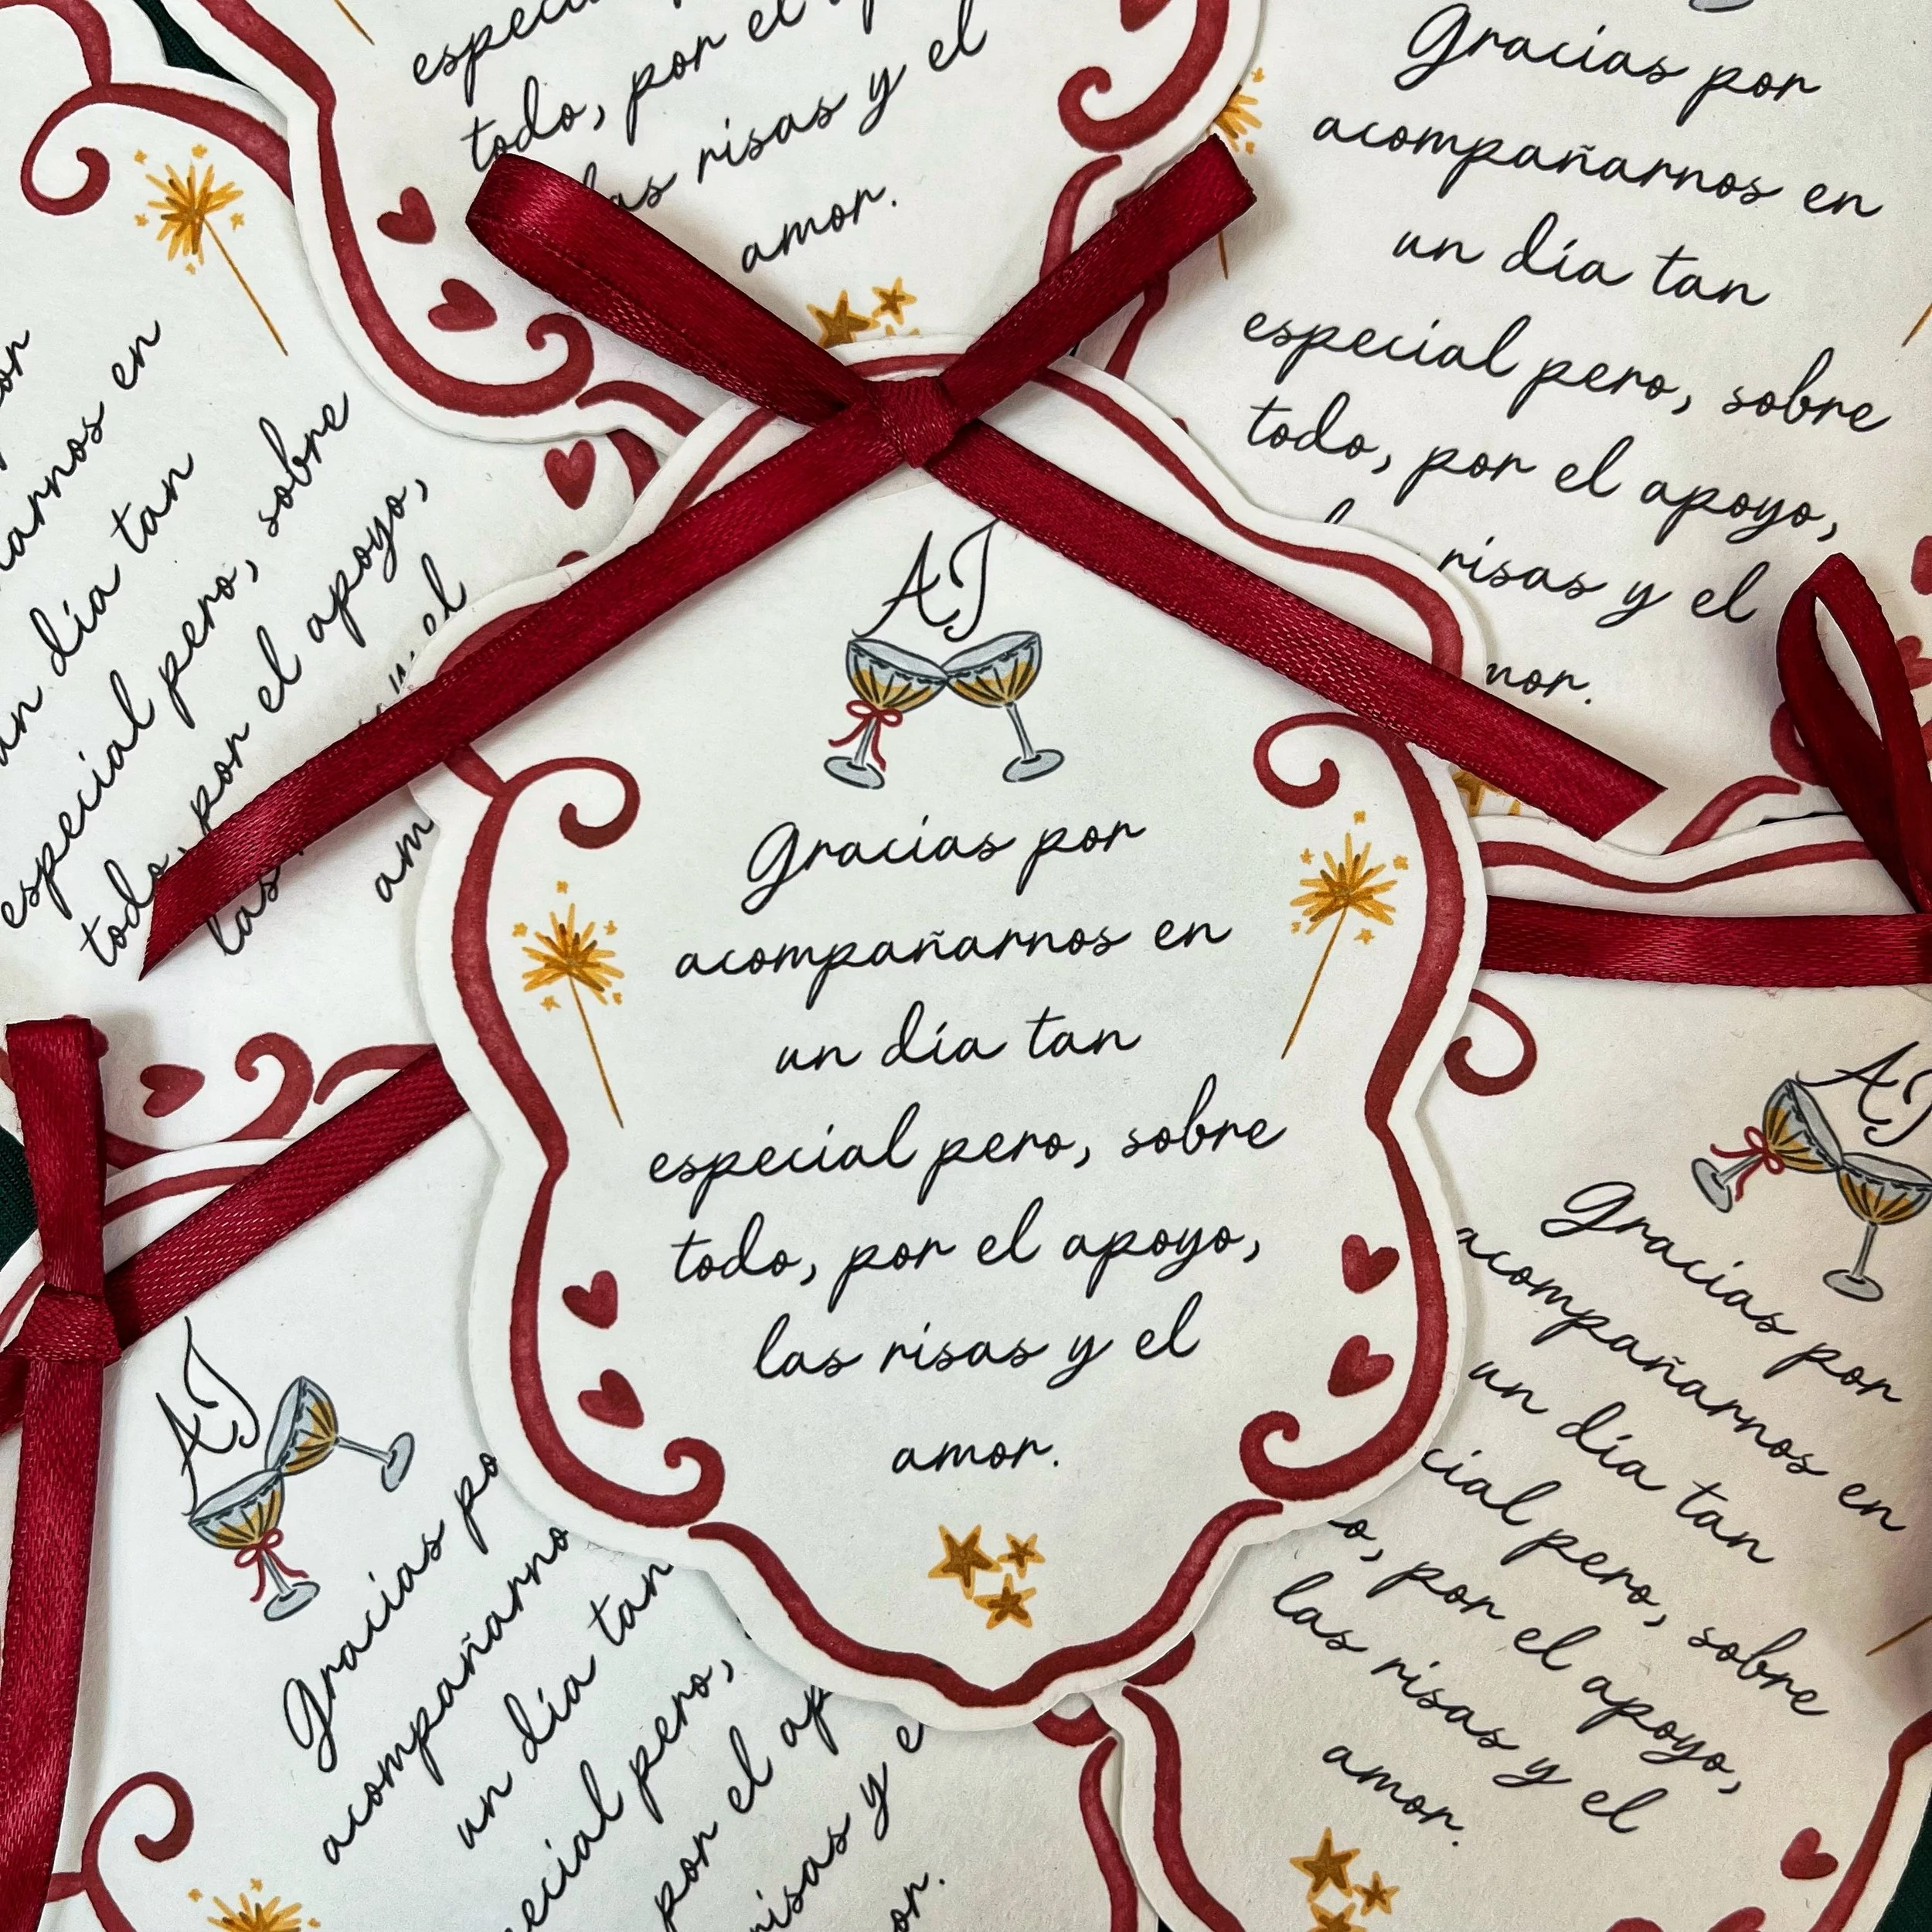 especi
todo, por el
las risas y el
amor.
Gracias por
acompañarnos en
un día tan
especial pero, sobre
todo, por el apoyo,
risas y el
mor.
or
narnos en
un día tan
especial pero, sobre
todo, por el apoyo,
las el
am
AJ
Gracias por
acompañarnos en
un día tan
especial pero, sobre
todo, por el apoyo,
las risas y el
amor.
AJ
Gracias por
acompañarnos en
un día tan
cial pero, sobre
o, por el apoyo,
las risas y el
amor.
AJ
Gracias po
acompañarno
un día tan
ecial pero,
por el ap
risas y e
or.